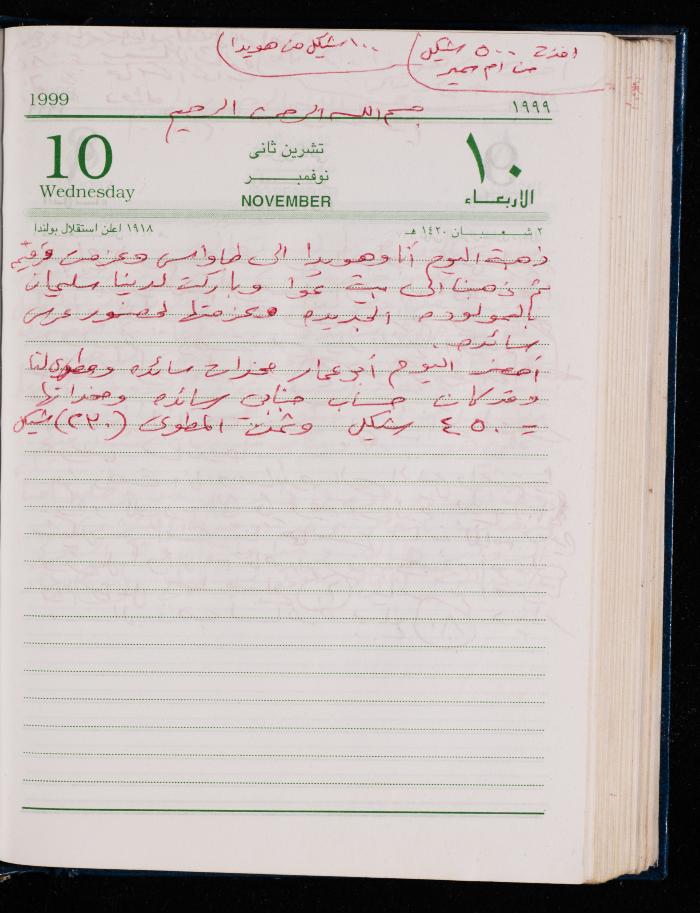 اخذت ٥٠٠ شيكل
من ام سمير
١٠٠ شيكل من هويدا
1999
بسم الله الرحمن الرحيم
١٩٩٩
10
Wednesday
تشرين ثانى
نوفمبر
NOVEMBER
١٠
الاربعاء
١٩١٨ اعلن استقلال بولندا
٢ شعبان ١٤٢٠ هـ
ذهبت اليوم أنا وهويدا الى طاواس وعزمت
ثم ذهبنا الى بيت عوا وباركت لدينا سليمان
بالمولوده الجديده وعزمتها لحضور عرس
سائده.
أحضر اليوم أبو عمار مخدات سائده ومطوى لنا
وقد كان حساب جنابي سائده ومخداتها
= ٤٥٠ شيكل وثمن المطوى (٢٣٠) شيكل